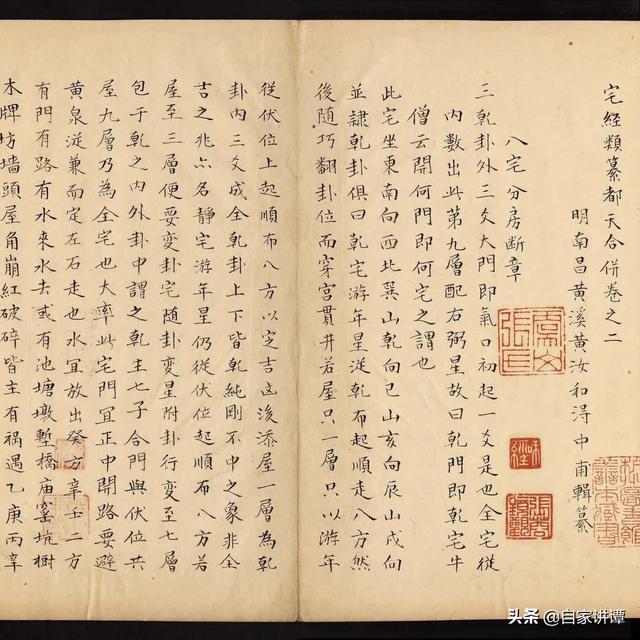 宅經類纂都天合併卷之二
明南昌黃溪黃汝和淂中甫輯纂
八宅分房断章
三乾卦外三爻大門即氣口初起一爻是也全宅從
内數出此第九層配右弼星故曰乾門即乾宅牛
僧云開何門即何宅之謂也
此宅坐東南向西北巽山乾向巳山亥向辰山戌向
並隷乾卦俱曰乾宅游年星従乾布起順走八方然
後随巧翻卦位而穿宫貫井若屋只一層只以游年
従伏位上起順布八方以定吉凶浚添屋一層為乾
卦内三爻成全乾卦上下皆乾純剛不中之象非全
吉之兆亦名静宅游年星仍從伏位起順布八方若
屋至三層便要変卦宅随卦变星附卦行变至七層
包于乾之内外卦中謂之乾主七子合門與伏位共
屋九層乃為全宅也大率此宅門冝正中開路要避
黄泉漎兼而定左右走也水冝放出癸方辛壬二方
有門有路有水來水去或有池塘墩塹橋庙窑坑樹
木牌坊墙頭屋角崩紅破碎皆主有禍遇乙庚丙辛
頭条 @自家讲谭